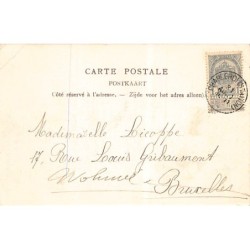 CARTE POSTALE
POSTKAART
Côté réservé à l'adresse. - Zijde voor het adres alleen
Mademoiselle Licoppe
17, Rue Louis Gribaumont
Woluwe -
Bruxelles